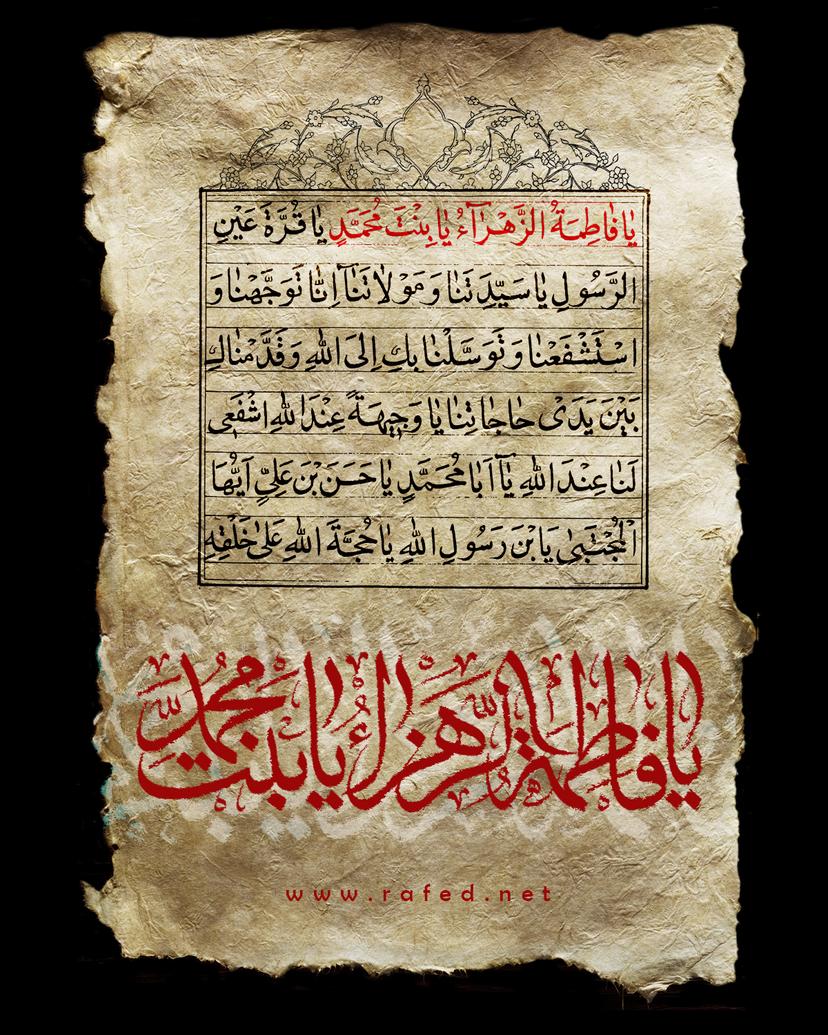 يَا فَاطِمَةُ الزَّهْرَآءُ يَا بِنْتَ مُحَمَّدٍ يَا قُرَّةَ عَيْنِ
الرَّسُولِ يَا سَيِّدَتَنَا وَمَوْلاتَنَا اِنَّا تَوَجَّهْنَا وَ
اسْتَشْفَعْنَا وَتَوَسَّلْنَا بِكِ اِلَى اللهِ وَقَدَّمْنَاكِ
بَيْنَ يَدَىْ حَاجَاتِنَا يَا وَجِيهَةً عِنْدَ اللهِ اشْفَعِى
لَنَا عِنْدَ اللهِ يَآ اَبَا مُحَمَّدٍ يَا حَسَنَ بْنَ عَلِيٍّ اَيُّهَا
الْمُجْتَبَى يَابْنَ رَسُولِ اللهِ يَا حُجَّةَ اللهِ عَلَى خَلْقِهِ
يا فاطمة الزهراءُ يا بنت محمد
www.rafed.net